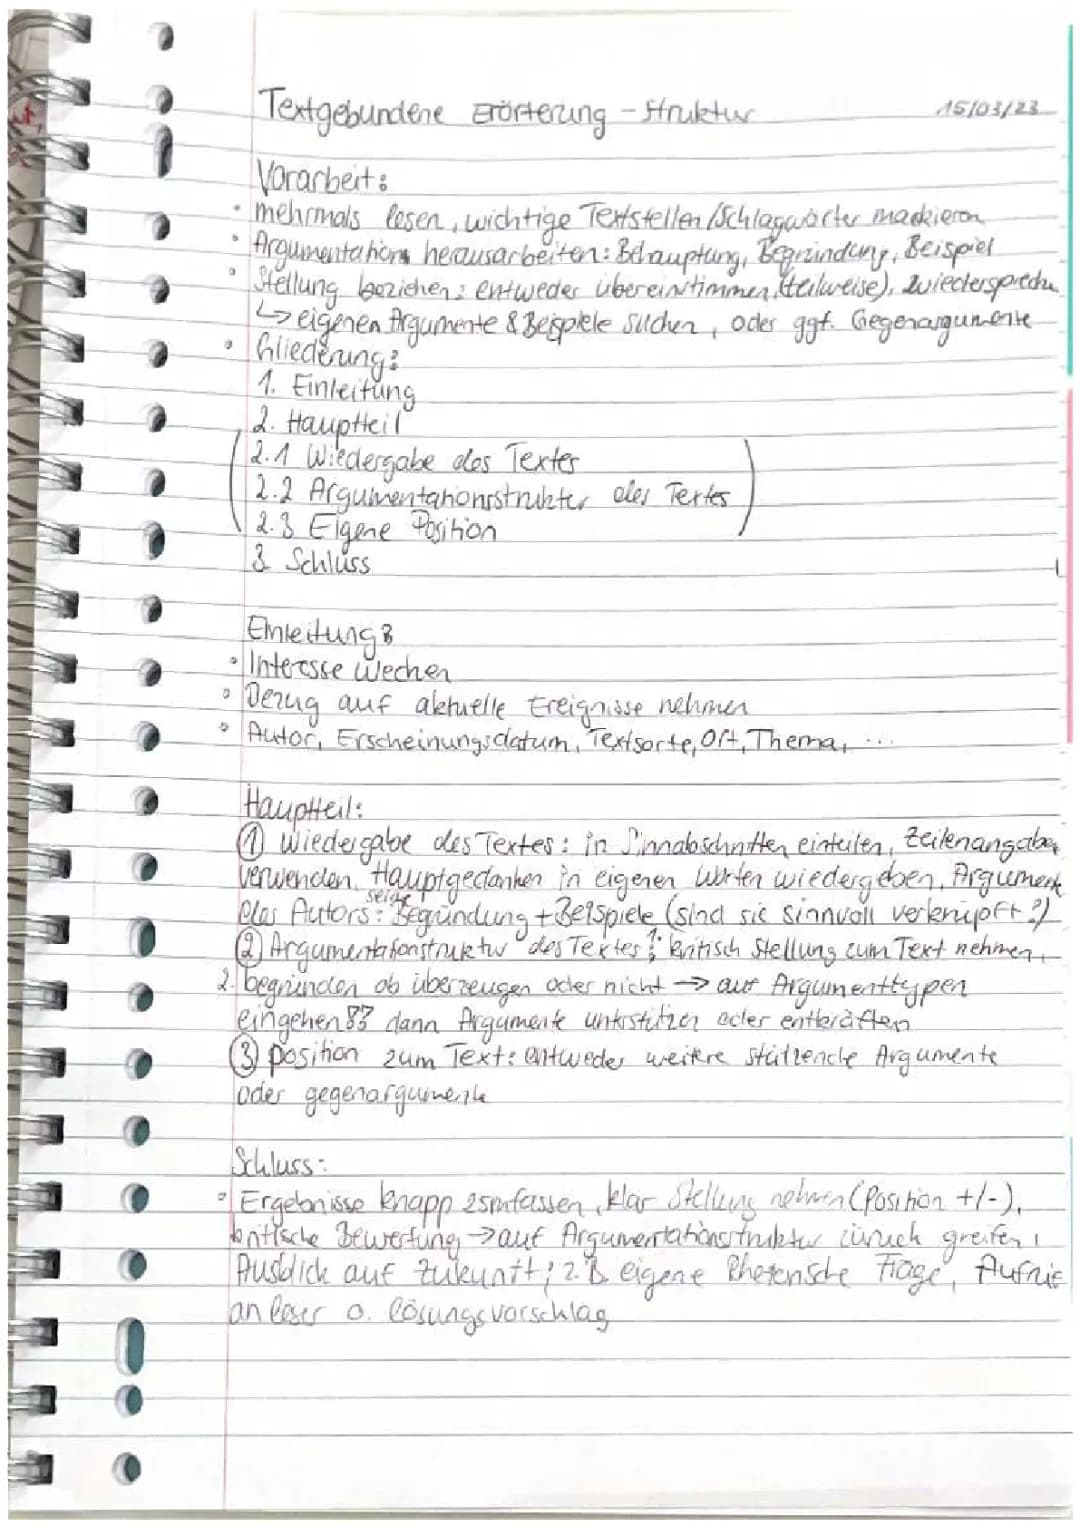 Textgebundene Erörterung - Struktur 15/03/23
Vorarbeit:
• mehrmals lesen, wichtige Textstellen/Schlagwörter markieren
• Argumentation herausarbeiten: Behauptung, Begründung, Beispiel
• Stellung beziehen: entweder übereinstimmen, (teilweise), wiedersprechen
↳ eigenen Argumente & Beispiele suchen, oder ggf. Gegenargumente
• Gliederung:
1. Einleitung
2. Hauptteil
2.1 Wiedergabe des Textes
2.2 Argumentationsstruktur des Textes
2.3 Eigene Position
3 Schluss
Einleitung:
• Interesse wecken
• Bezug auf aktuelle Ereignisse nehmen
• Autor, Erscheinungsdatum, Textsorte, Ort, Thema, ...
Hauptteil:
① Wiedergabe des Textes: in Sinnabschnitten einteilen, Zeilenangaben
verwenden, Hauptgedanken in eigenen Worten wiedergeben, Argumente
des Autors: seine Begründung + Beispiele (sind sie sinnvoll verknüpft?)
② Argumentationstruktur des Textes: 1. kritisch Stellung zum Text nehmen,
2. begründen ob überzeugen oder nicht → auf Argumenttypen
eingehen 3. dann Argumente unterstützen oder entkräften
③ position zum Text: entweder weitere stützende Argumente
oder gegenargumente
Schluss:
• Ergebnisse knapp zsmfassen, klar Stellung nehmen (Position +/-),
kritische Bewertung → auf Argumentationsstruktur zurück greifen,
Ausblick auf Zukunft; z.B eigene Rhetorische Frage, Aufruf
an leser o. lösungsvorschlag